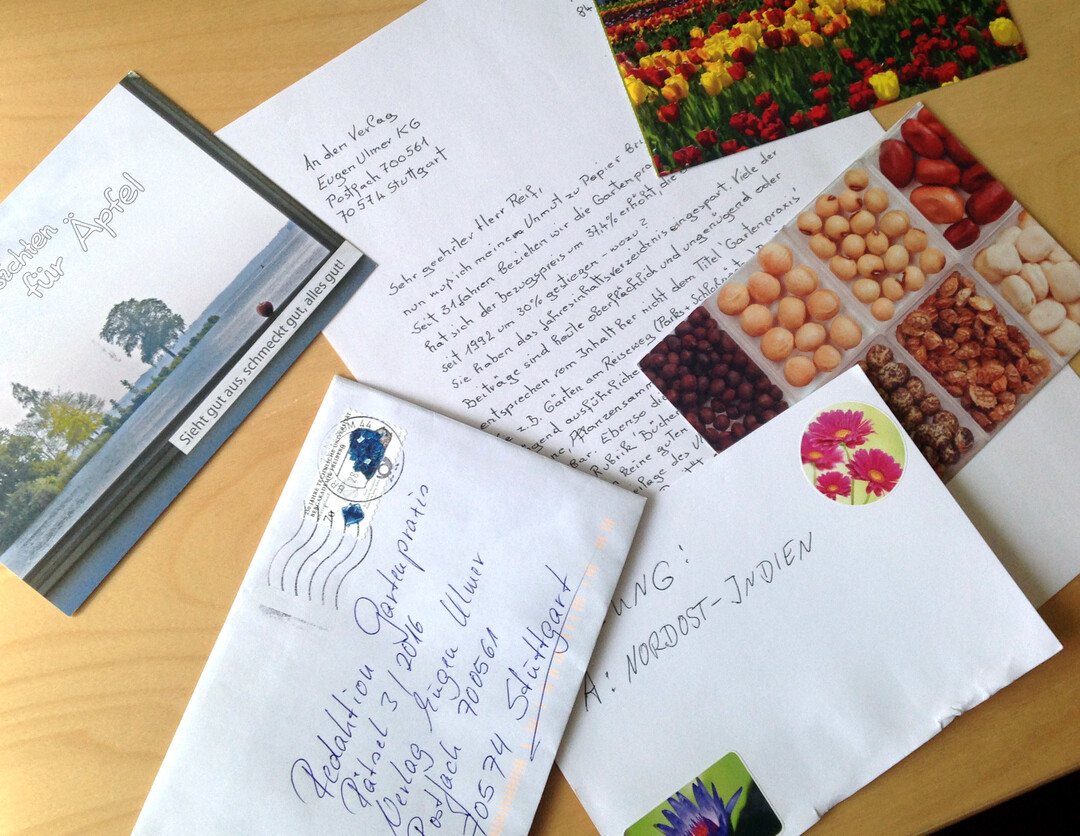 für Äpfel
Sieht gut aus, schmeckt gut, alles gut!
84
An den Verlag
Eugen Ulmer KG
Postfach 700561
70574 Stuttgart
Sehr geehrter Herr Reif,
nun muß ich meinem Unmut zu Papier
Seit 31 Jahren beziehen wir die Gartenpra
hat sich der Bezugspreis um 37,4% erhöht, die
seit 1992 um 30% gestiegen - wozu?
Sie haben das Jahresinhaltsverzeichnis eingespart. Viele der
Beiträge sind heute oberflächlich und ungenügend oder
entsprechen vom Inhalt her nicht dem Titel "Gartenpraxis"
z.B. Gärten am Reiseweg (Parks,
gend ausführliche
Pflanzensamm
bar. Ebenso die
Rubrik Bücher
keine guten
lage des
Redaktion Gartenpraxis
Rätsel 3/2016
Verlag Eugen Ulmer
Postfach 700561
70574 Stuttgart
UNG!
A: NORDOST-INDIEN